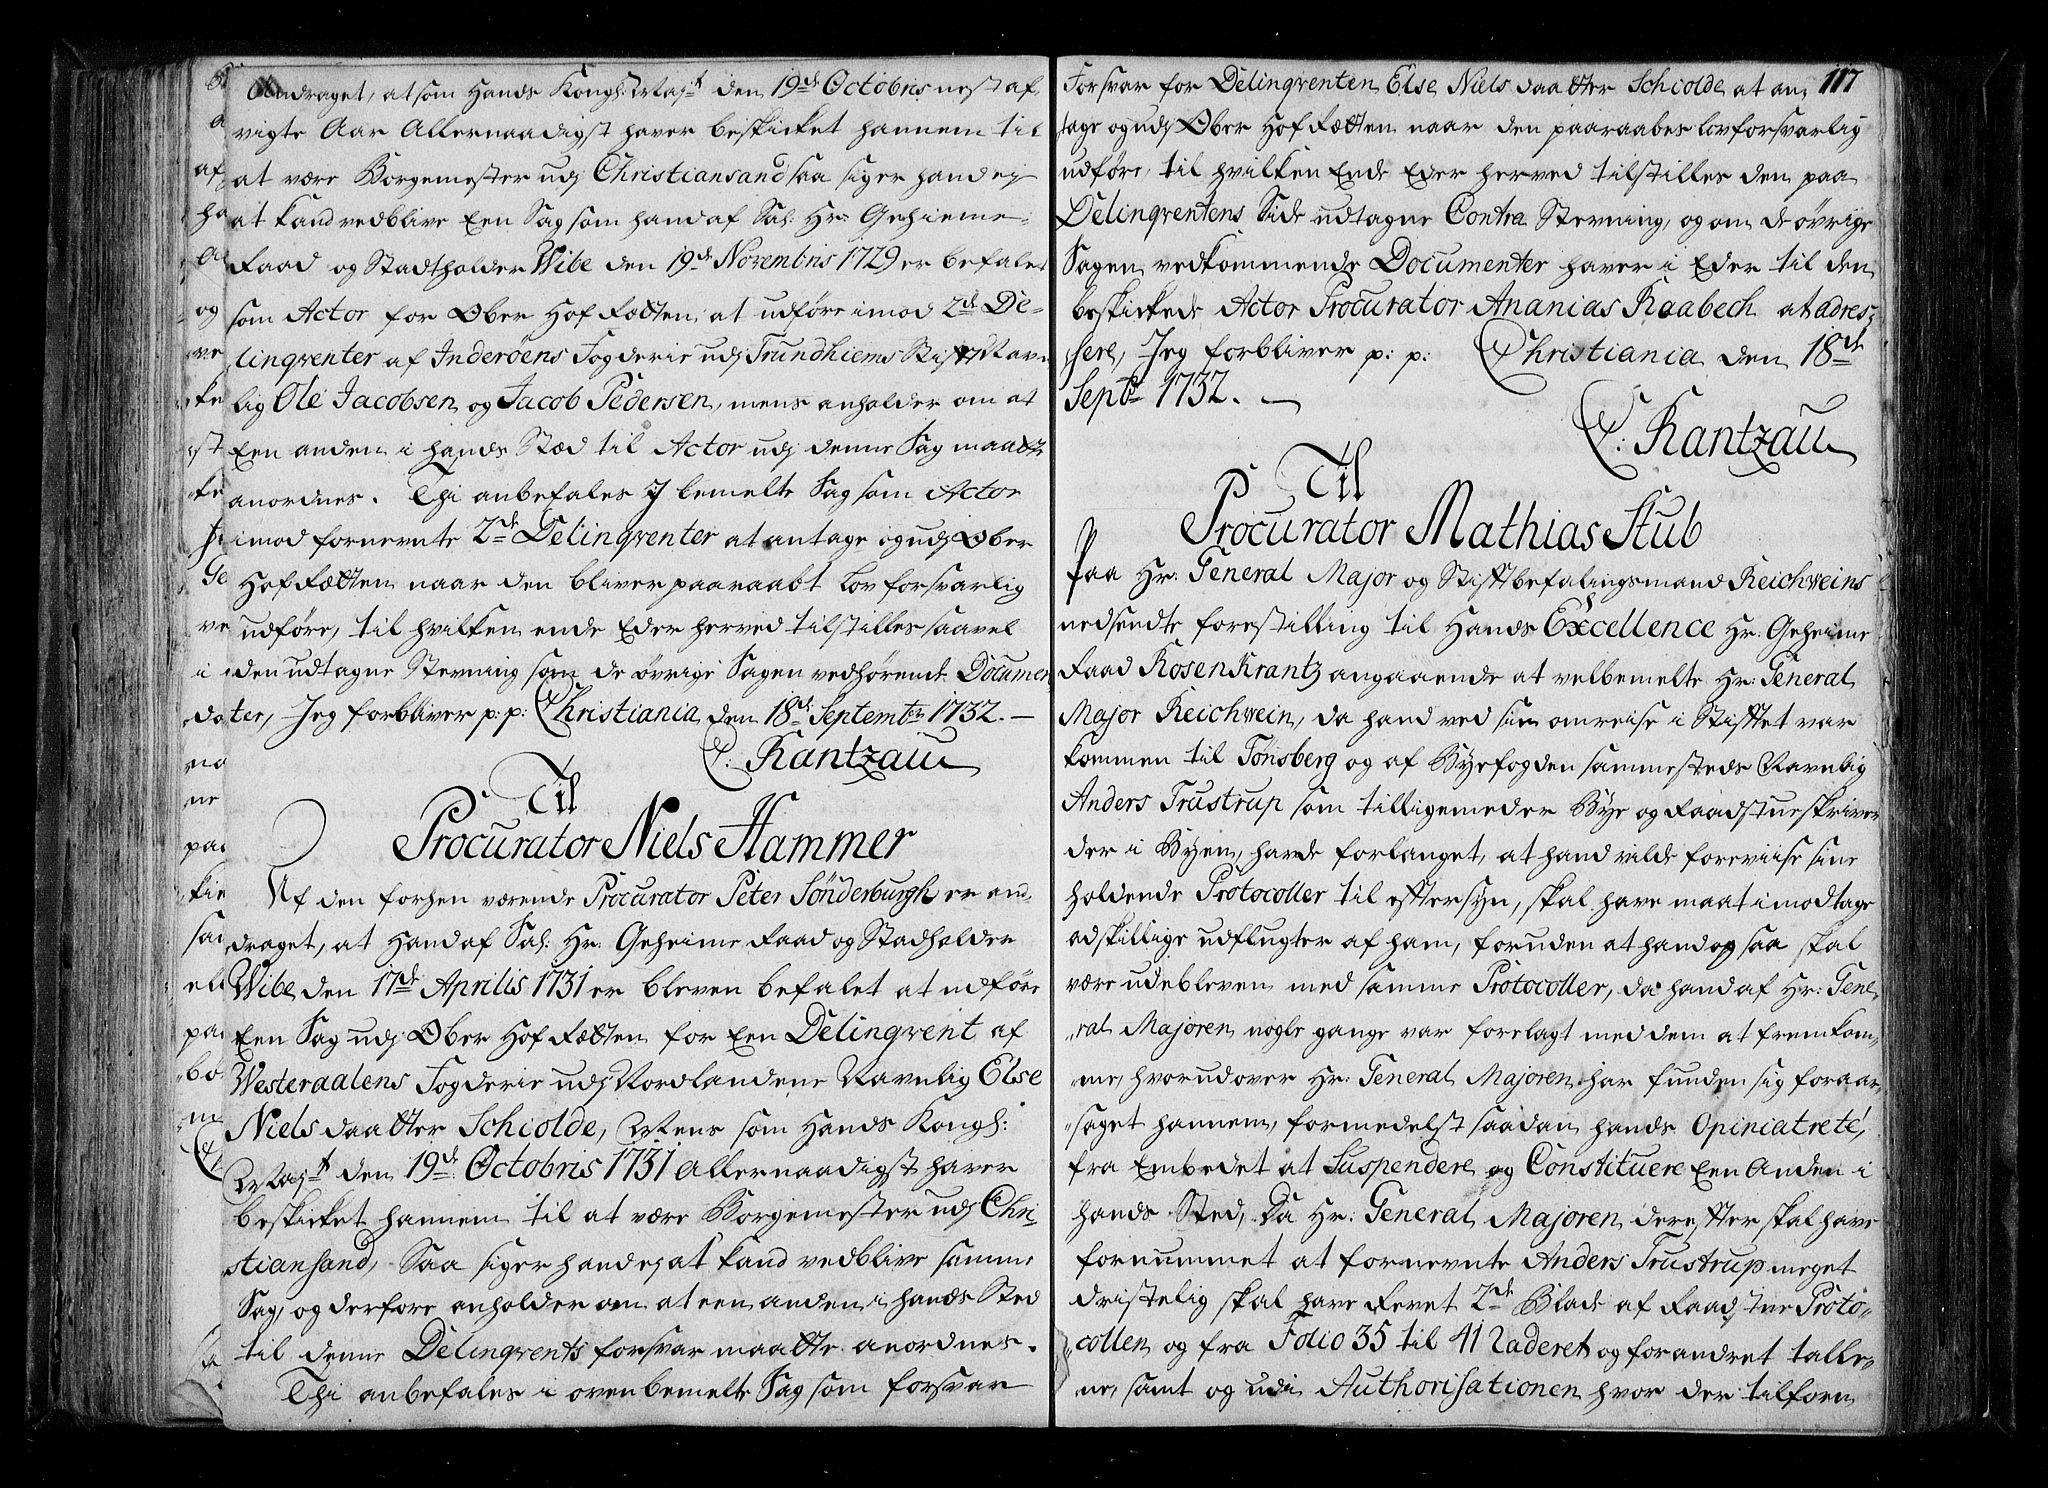 Andraget, at som Hands Kongl: Mays.t den 19de Octobris nest af,
vigte Aar Allernaadigst haver beskicket hannem til
at være Borgemester udj Christiansand saa siger hand ej
at kand vedblive Een Sag som hand af Sal: Hr: Gehieme-
Raad og Stadtholder Wibe den 19de Novembris 1729 er befalet
som Actor for Ober Hof Retten at udføre imod 2de De-
linqventer af Inderøens Fogderie udj Trundhiems Stift Navn
lig Ole Jacobsen og Jacob Pedersen, mens anholder om at
Een anden i hands Stæd til Actor udj denne Sag maatte
anordnes. Thi anbefales J bemelte Sag som Actor
imod fornevnte 2de Delinqventer at antage og udj Ober
Hof Retten naar den bliver paaraabt Lov forsvarlig
udføre, til hvilken ende Eder herved tilstilles saavel
den udtagne Stevning som de øvrige Sagen vedhørende Documen
ter, Jeg forbliver p: p: Christiania den 18de Septembr: 1732. —
C: Rantzau
Til
Procurator Niels Hammer
Af den forhen værende Procurator Peter Sönderburgh er and,
draget, at Hand af Sal: Hr: Geheime Raad og Stadholder
Wibe den 17de Aprilis 1731 er bleven befalet at udføre
Een Sag udj Ober Hof Retten for Een Delinqvent af
Westeraalens Fogderie udj Nordlandene Navnlig Else
Niels daatter Schiolde, Mens som Hands Kongl:
Mays.t den 19de Octobris 1731 Allernaadigst haver
beskicket hannem til at være Borgemester udj Chri-
stiansand, Saa siger hand ej at kand vedblive samme
Sag, og derfore anholder om at een anden i hands Sted
til denne Delinqvents forsvar maatte anordnes.
Thi anbefales i ovenbemelte Sag som forsvar
117
Forsvar for Delinqventen Else Niels daatter Schiolde at an,
tage og udj Ober Hof Retten naar den paaraabes lovforsvarlig
udføre, til hvilken Ende Eder herved tilstilles den paa
Delinqventens Side udtagne Contra Stevning, og om de øvrige
Sagen vedkommende Documenter haver i Eder til den
beskickede Actor Procurator Ananias Raabech at adres,
sere, Jeg forbliver p: p: Christiania den 18de
Septbr 1732. —
C: Rantzau
Til
Procurator Mathias Stub
Paa Hr: General Major og Stiftbefalingsmand Reichweins
nedsendte forestilling til Hands Excellence Hr: Geheime
Raad RosenKrantz angaaende at velbemelte Hr: General
Major Reichwein, da hand ved sin omreise i Stiftet var
kommen til Tønsberg og af Byefogden sammesteds Navnlig
Anders Trustrup som tilligemed er Bye og Raadstueskriver
der i Byen, havde forlanget, at hand vilde foreviise sine
holdende Protocoller til eftersyn, skal have maat imodtage
adskillige udflugter af ham, foruden at hand og saa skal
være udebleven med samme Protocoller, da hand af Hr: Gene-
ral Majoren nogle gange var forelagt med dem at fremkom,
me, hvorudover Hr: General Majoren har funden sig foraar,
saget hannem, formedelst saadan hands Opiniatreté,
fra Embedet at Suspendere og Constituere Een Anden i
hands Sted, Da Hr: General Majoren derefter skal have
fornummet at fornevnte Anders Trustrup meget
dristelig skal have Revet 2de Blade af Raadstue Proto-
collen og fra Folio 35 til 41 Raderet og forandret talle-
ne, samt og udi Authorisationen hvor der tilforn